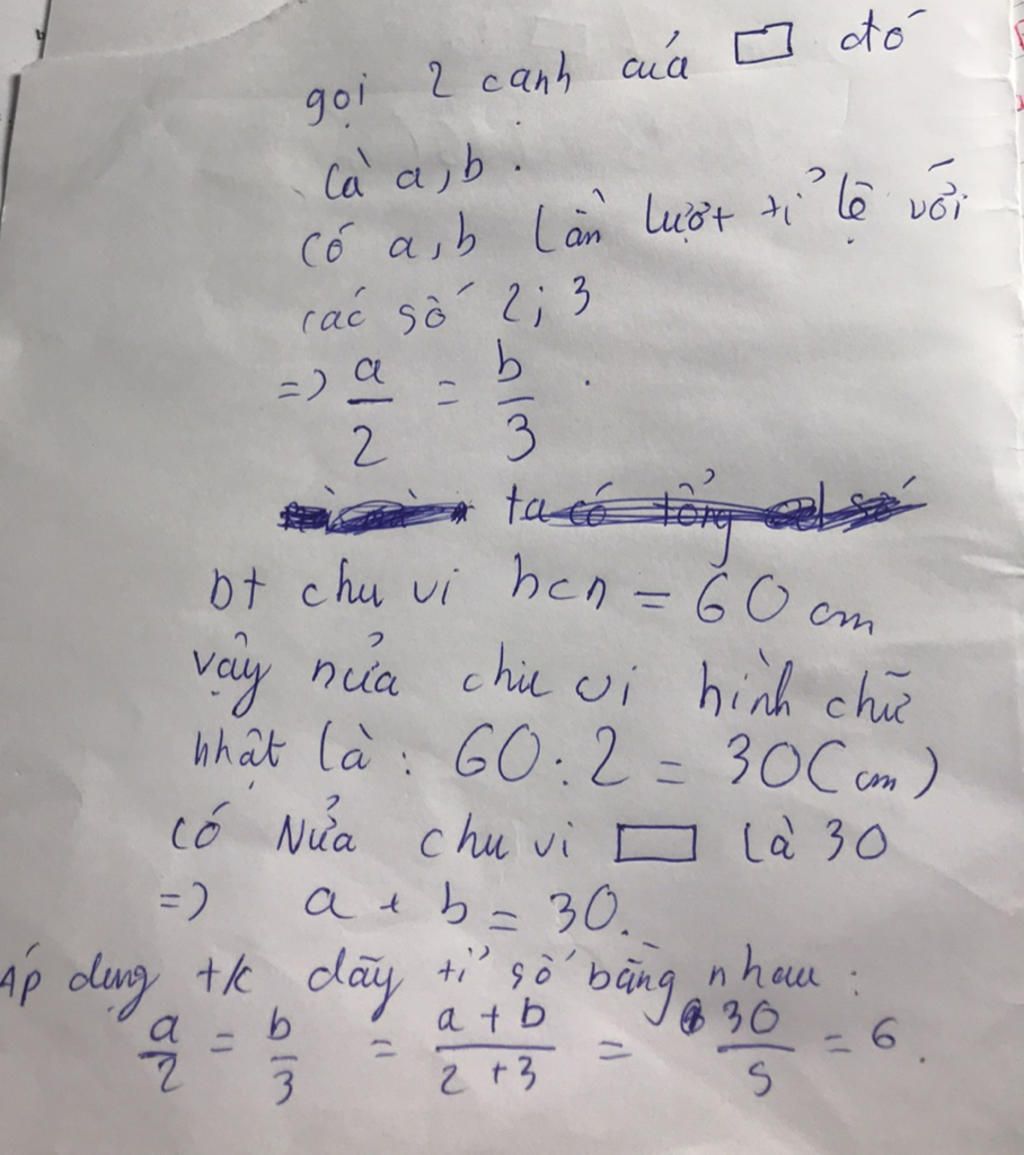 gọi 2 cạnh của ▭ đó
là a, b.
Có a, b lần lượt tỉ lệ với
các số 2; 3
=> a/2 = b/3.
ta có tổng số
bt chu vi hcn = 60 cm
vậy nửa chu vi hình chữ
nhật là : 60 : 2 = 30 (cm)
Có Nửa chu vi ▭ là 30
=> a + b = 30.
Áp dụng t/c dãy tỉ số bằng nhau :
a/2 = b/3 = a + b/2 + 3 = 30/5 = 6.